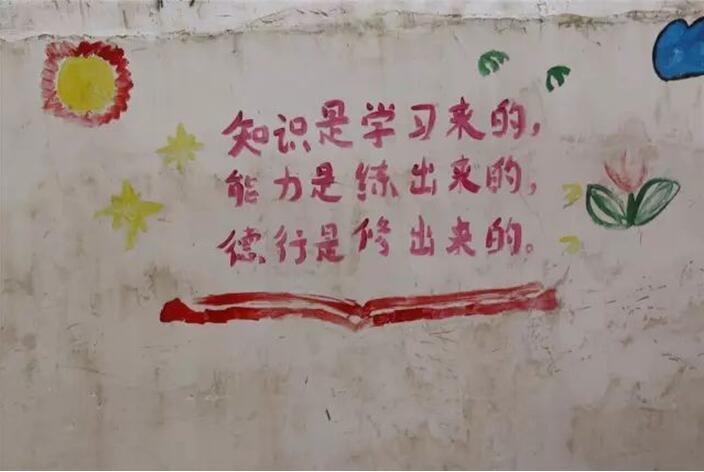 知识是学习来的,
能力是练出来的,
德行是修出来的。